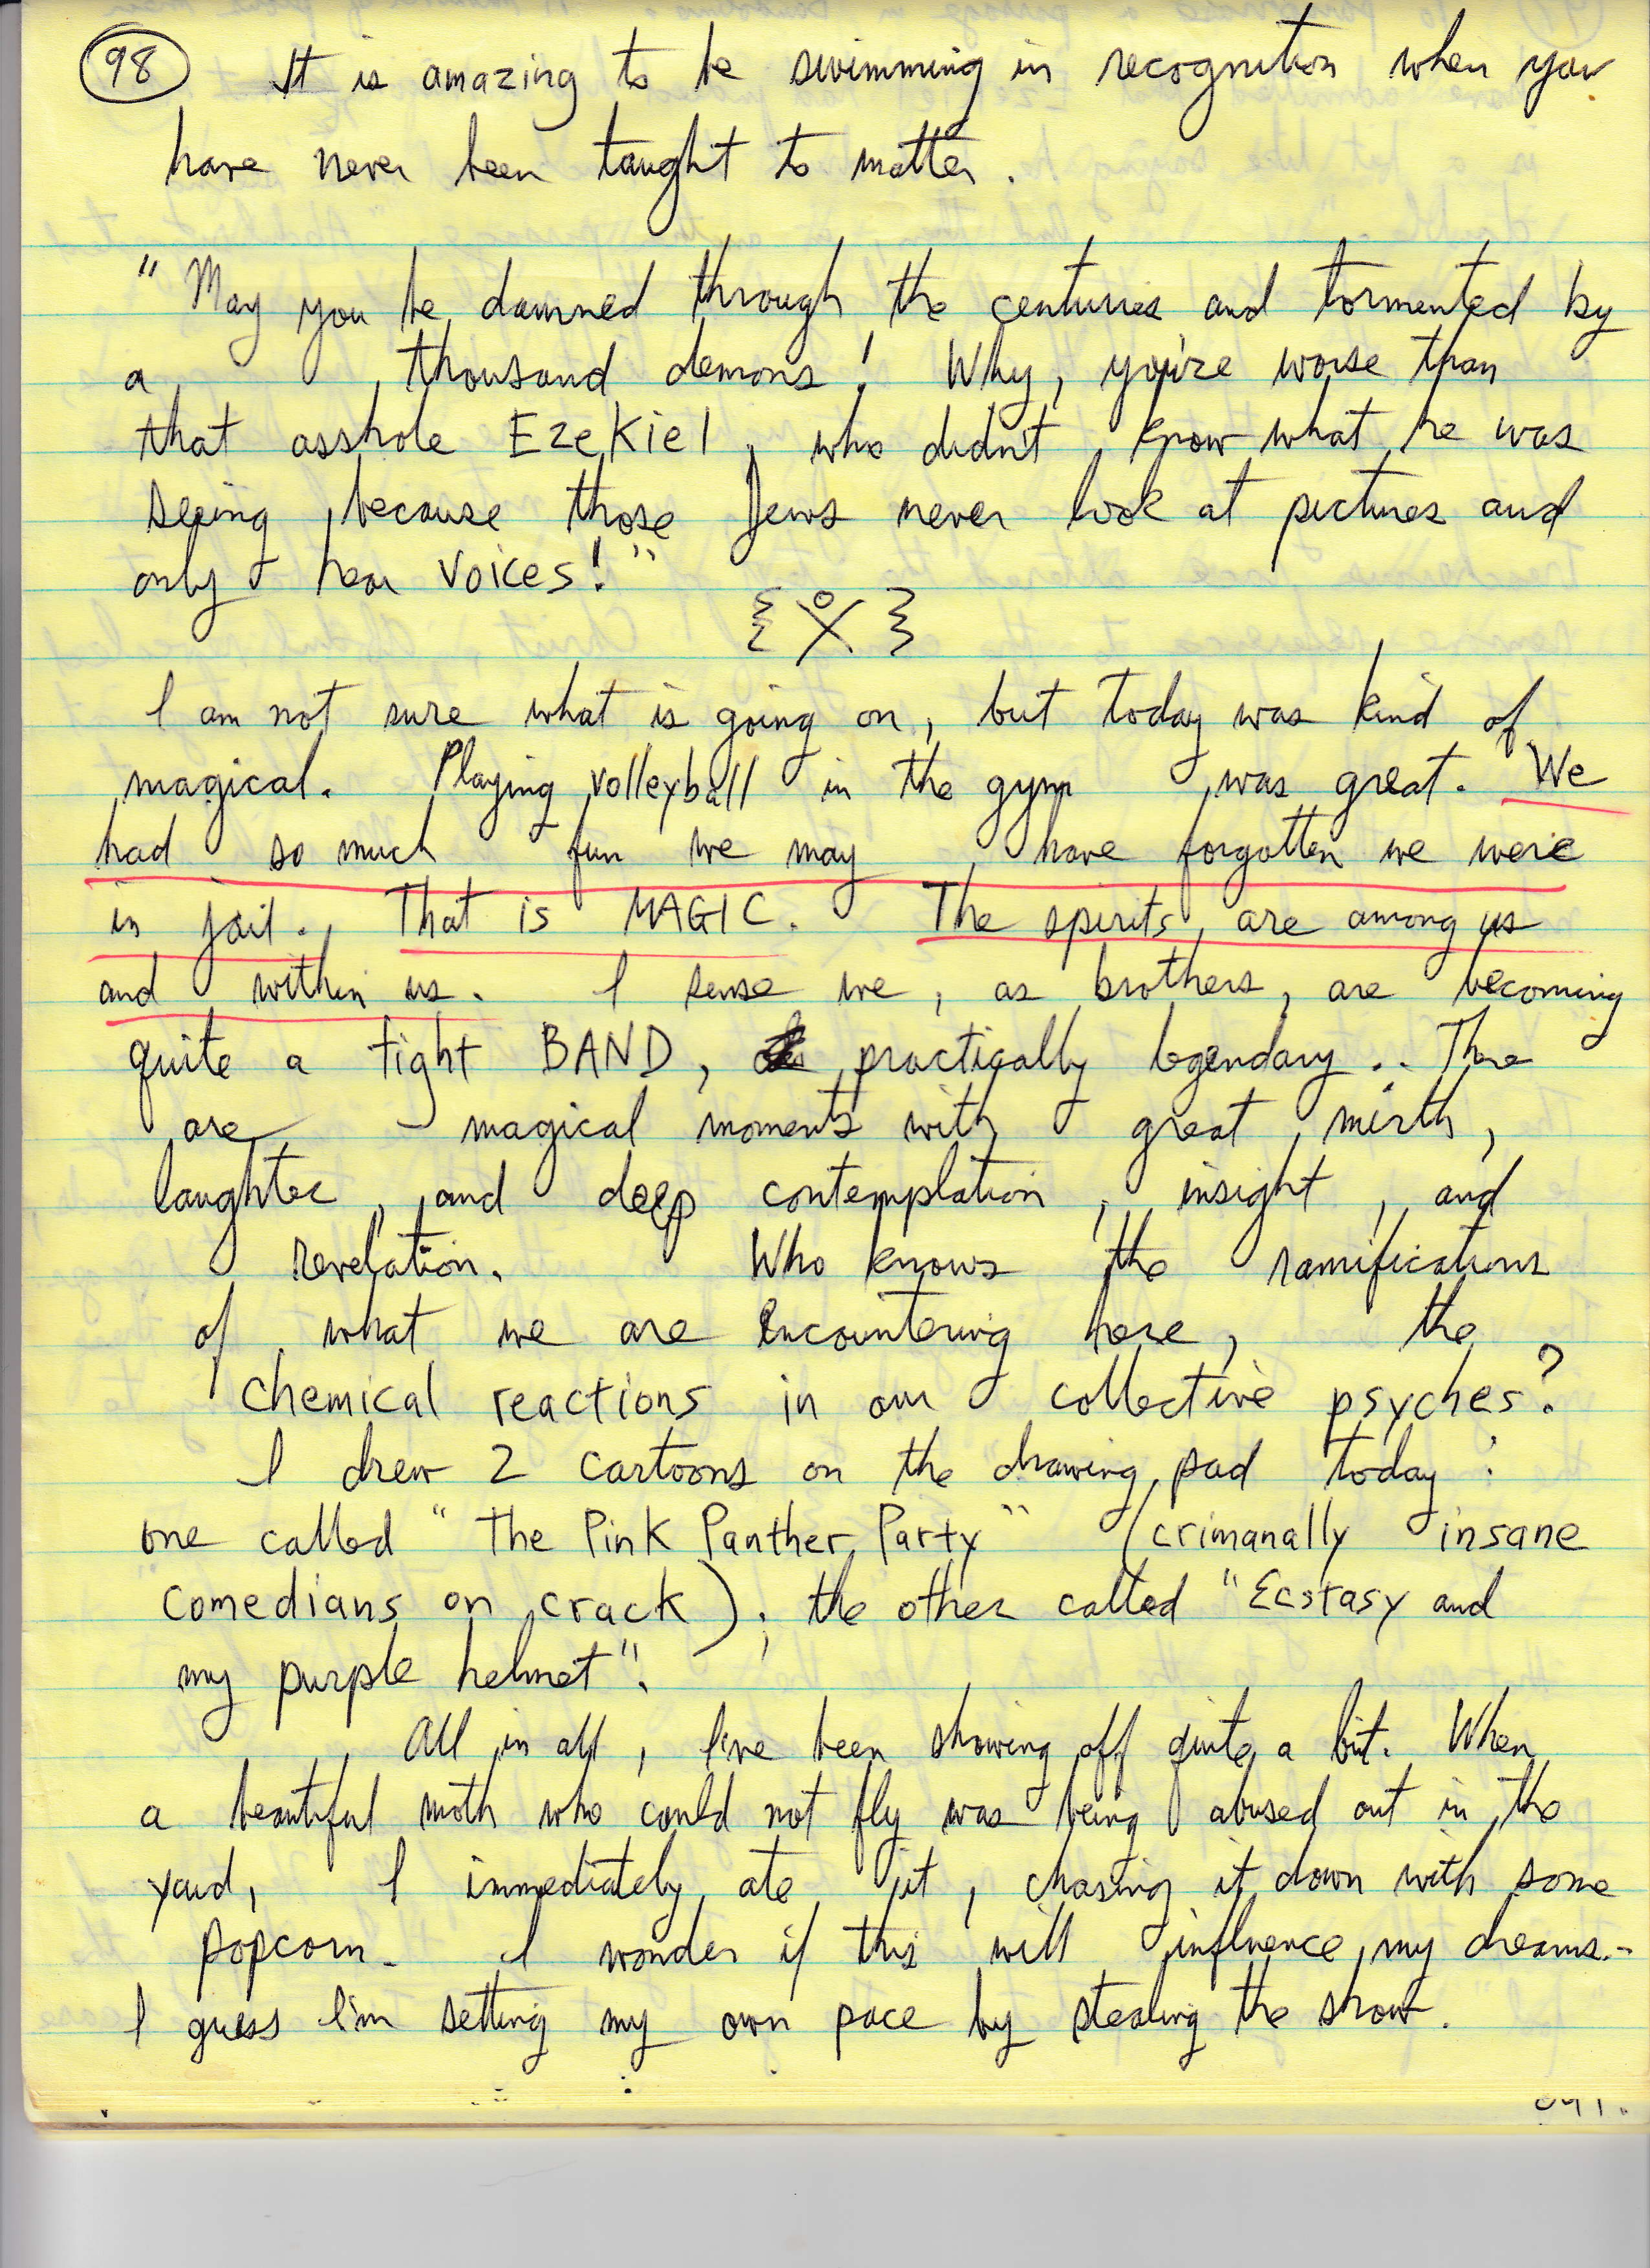 98 It is amazing to be swimming in recognition when you
have never been taught to matter.
" May you be damned through the centuries and tormented by
a thousand demons! Why, you're worse than
that asshole Ezekiel, who didn't know what he was
seeing because those Jews never look at pictures and
only hear voices!"
I am not sure what is going on, but today was kind of
magical. Playing volleyball in the gym was great. We
had so much fun we may have forgotten we were
in jail. That is MAGIC. The spirits are among us
and within us. I sense we, as brothers, are becoming
quite a tight BAND, practically legendary... There
are magical moments with great mirth,
laughter, and deep contemplation, insight, and
revelation. Who knows the ramifications
of what we are encountering here, the
chemical reactions in our collective psyches?
I drew 2 cartoons on the drawing pad today:
one called "The Pink Panther Party" (crimanally insane
comedians on crack); the other called "Ecstasy and
my purple helmet".
All in all, I've been showing off quite a bit. When
a beautiful moth who could not fly was being abused out in the
yard, I immediately ate it, chasing it down with some
popcorn. I wonder if this will influence my dreams..
I guess I'm setting my own pace by stealing the show.